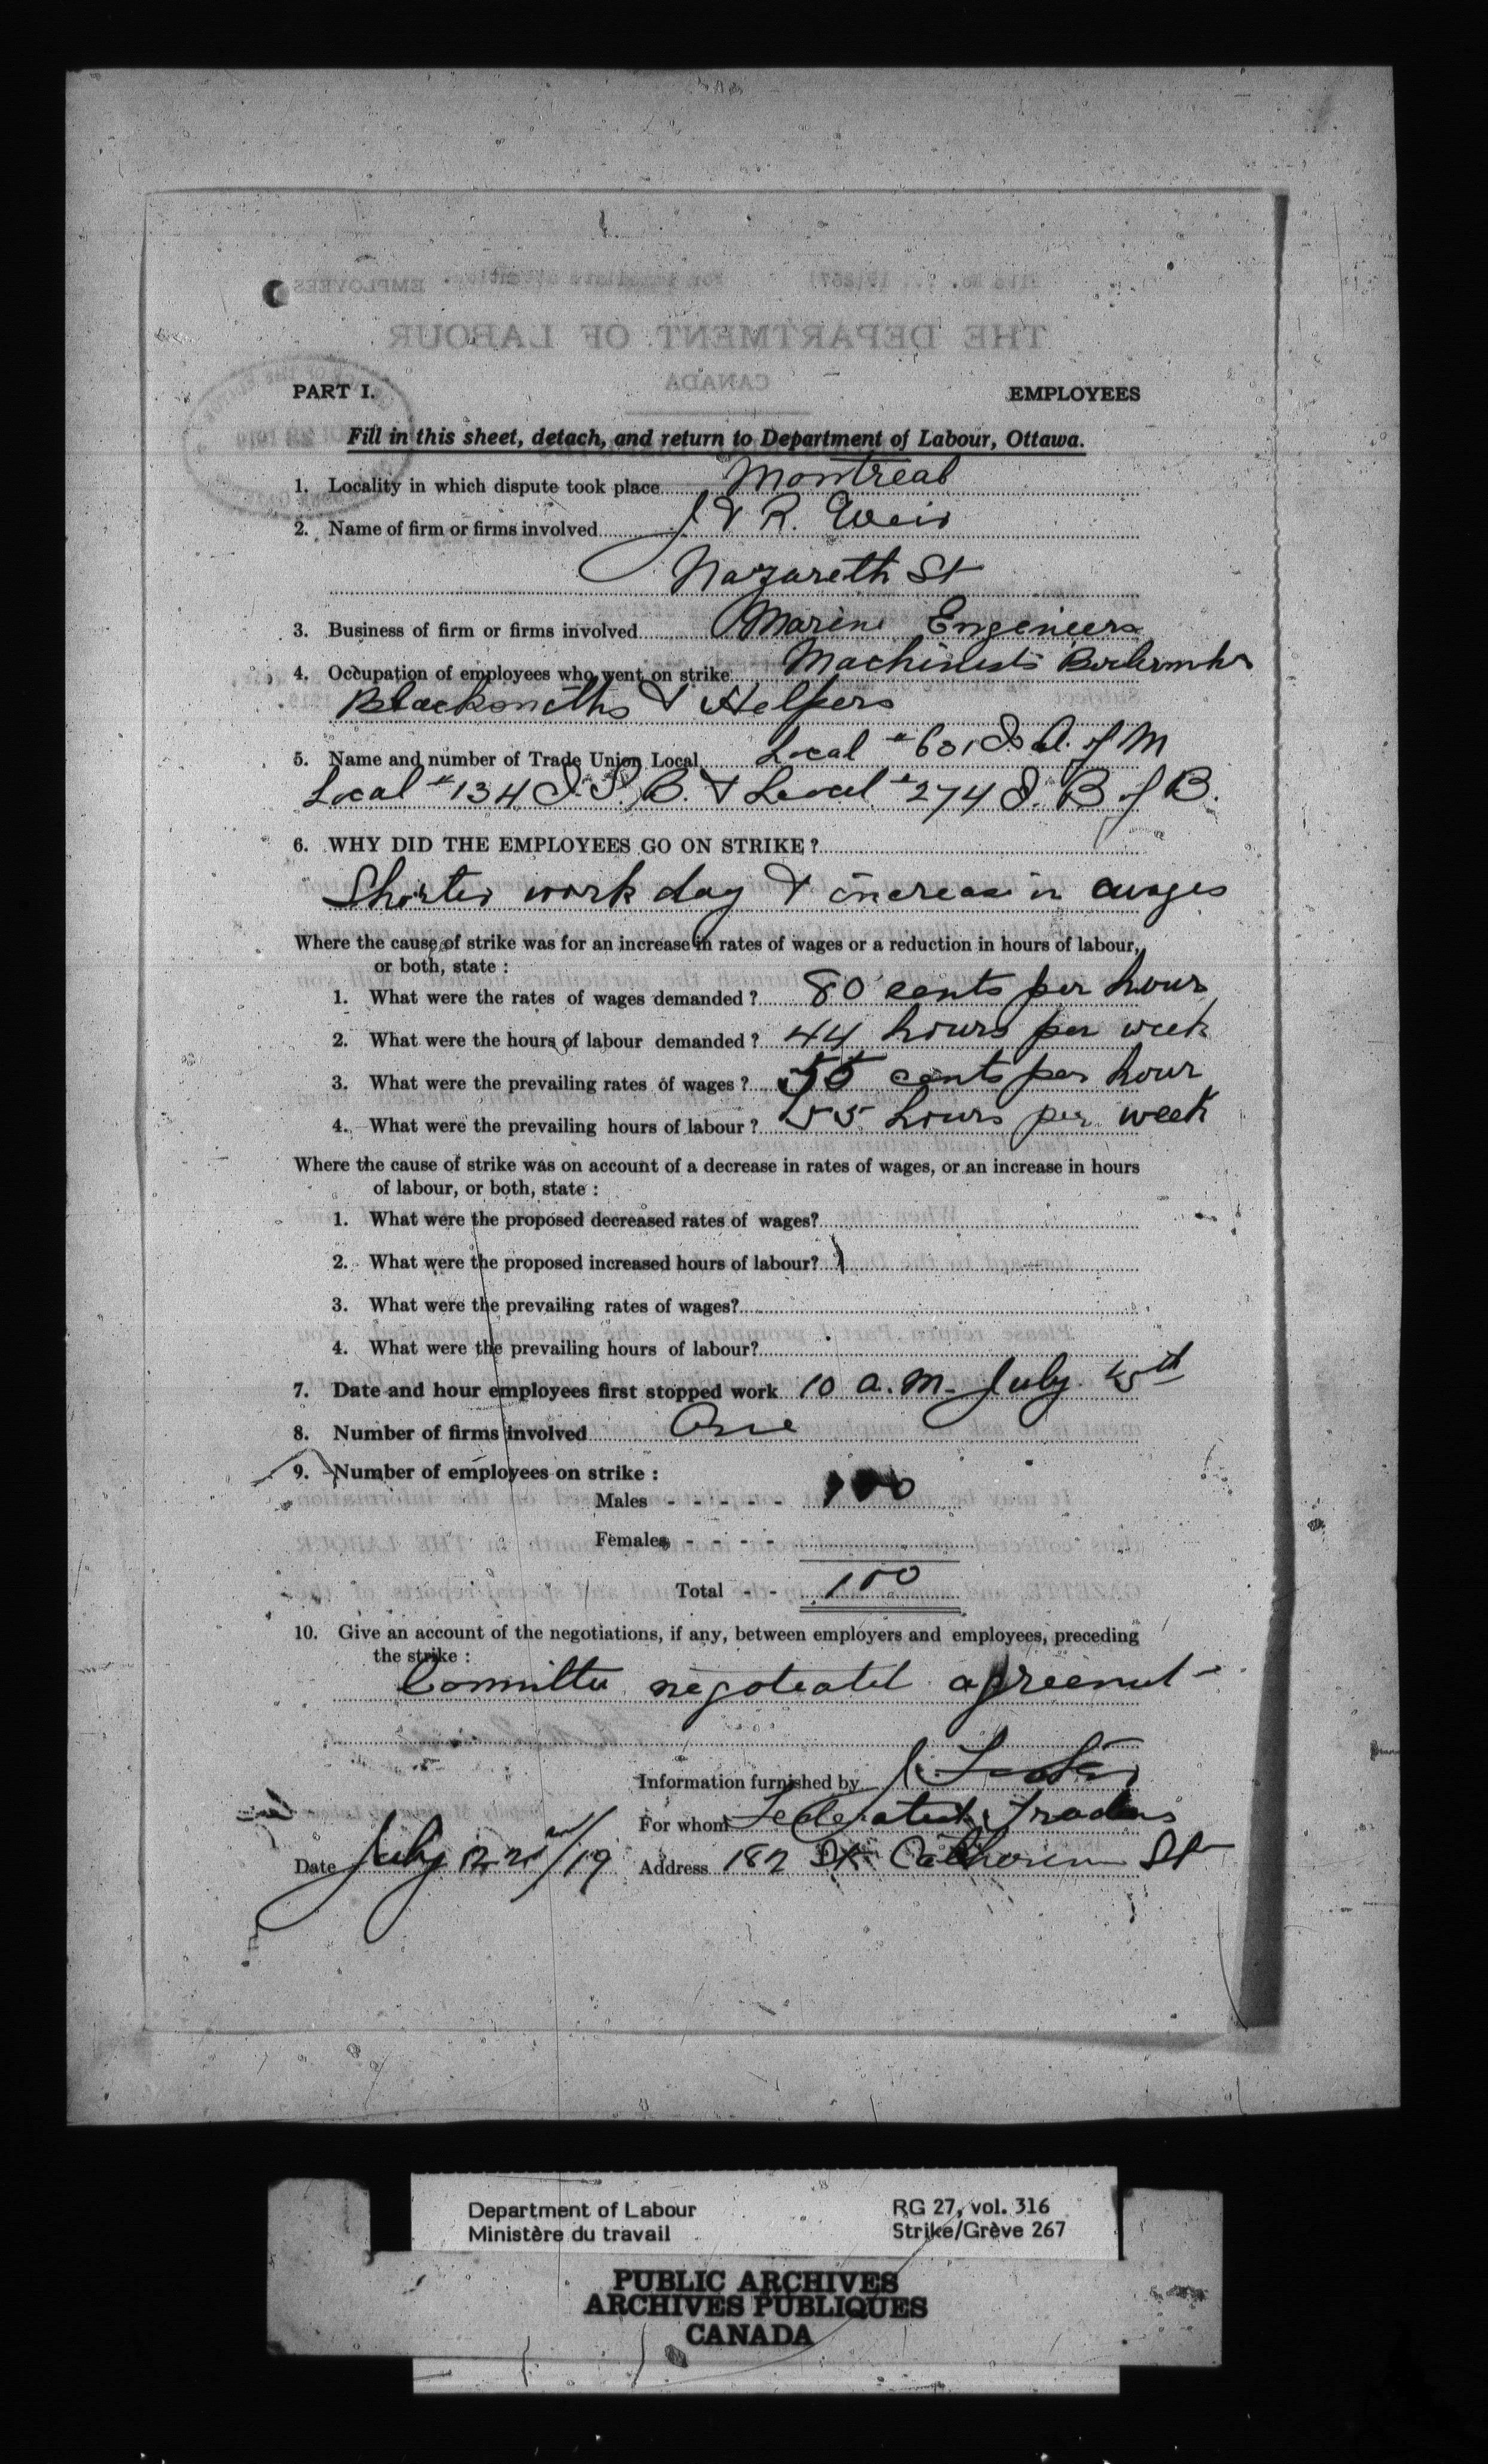 PART I.
EMPLOYEES
Fill in this sheet, detach, and return to Department of Labour, Ottawa.
1. Locality in which dispute took place Montreal
2. Name of firm or firms involved J & R. Weir
Nazareth St
3. Business of firm or firms involved Marine Engineers
4. Occupation of employees who went on strike Machinists Boilermkrs
Blacksmiths & Helpers
5. Name and number of Trade Union Local Local #631 I. A. of M
Local #134 I. B. & Local #274 I. B of B.
6. WHY DID THE EMPLOYEES GO ON STRIKE?
Shorter work day & increase in wages
Where the cause of strike was for an increase in rates of wages or a reduction in hours of labour,
or both, state :
1. What were the rates of wages demanded ? 80 cents per hour
2. What were the hours of labour demanded ? 44 hours per week
3. What were the prevailing rates of wages ? 55 cents per hour
4. What were the prevailing hours of labour ? 55 hours per week
Where the cause of strike was on account of a decrease in rates of wages, or an increase in hours
of labour, or both, state :
1. What were the proposed decreased rates of wages?
2. What were the proposed increased hours of labour?
3. What were the prevailing rates of wages?
4. What were the prevailing hours of labour?
7. Date and hour employees first stopped work 10 a.m. July
8. Number of firms involved One
9. Number of employees on strike :
Males - - - - - 100
Females - - - -
Total - - 100
10. Give an account of the negotiations, if any, between employers and employees, preceding
the strike :
Committee negotiated agreement
Information furnished by J.
For whom Federated Trades
Date July 22nd/19 Address 182 St Catherine St
Department of Labour
Ministère du travail
RG 27, vol. 316
Strike/Grève 267
PUBLIC ARCHIVES
ARCHIVES PUBLIQUES
CANADA